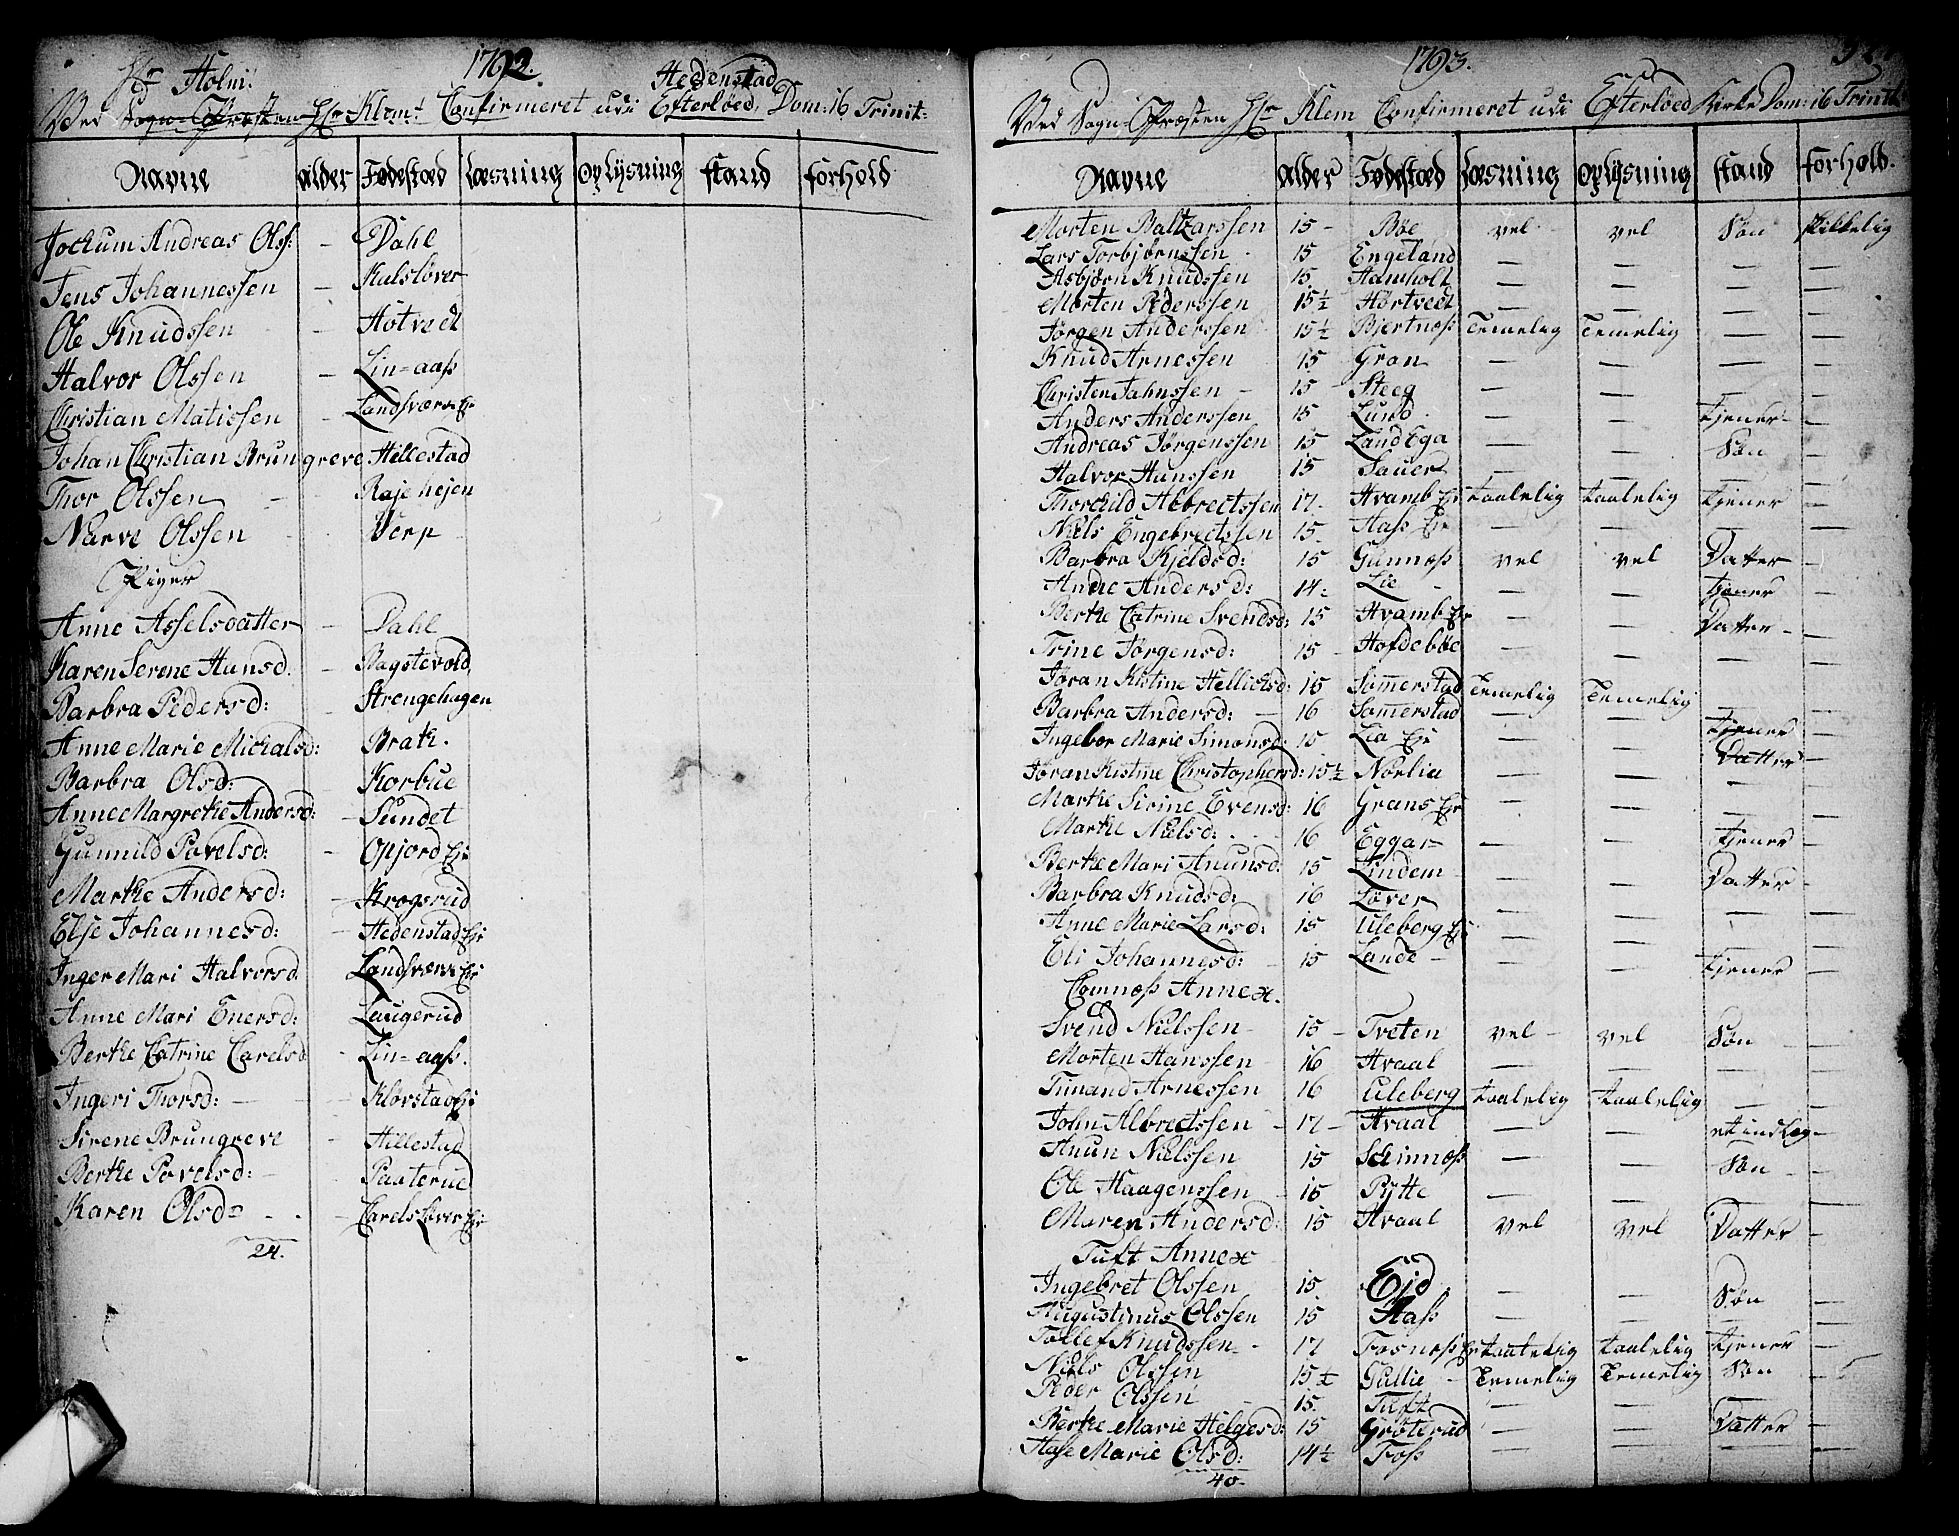 1792.
Hr Holm: Hedenstad
Ved Sogn-Præsten Hr Klem: Confirmeret udi Efterløed, Dom: 16 Trinit:
Navne alder Fødestæd Læsning Oplysning stand forhold
Jockum Andreas Ols: - Dahl
Jens Johannessen - Kulsløver
Ole Knudssen - Hotvedt
Halvor Olssen - Lin=aass
Christian Matissen - Landsværk Ejr
Johan Christian Brungreve Hillestad
Thor Olssen - Rajehejen
Narve Olssen - Verp
Piger
Anne Asselsdatter - Dahl
Karen Serene Hansd. - Bagstevold
Barbra Pedersd: Strengehagen
Anne Marie Michalsd: Brath.
Barbra Olsd: Korbue
Anne Margrethe Andersd: - Sundet
Gunnild Povelsd: - Opjord Ejr
Marthe Andersd: - Krogsrud
Else Johannesd: - Hedenstad Ejr
Inger Mari Halvorsd Landsværk Ejr
Anne Mari Enersd: Laugerud
Berthe Catrine Carelsd - Lin=aass.
Ingeri Thorsd: - - Kløvstad Ejr
Sirene Brungreve - Hillestad
Berthe Povelsd: - Pasterud
Karen Olsd= - - Carelsløver Ejr
24.
1793.
Ved Sogn-Præsten Hr Klem Confirmeret udi Efterløed Kirke Dom: 16 Trinit:
Navne alder Fødestæd Læsning Oplysning stand forhold.
Morten Baltzarssen 15 - Bøe vel - vel Søn skikkelig
Lars Torbjørnssen 15 Engeland — — — —
Asbjørn Knudssen 15. Hamholt — — — —
Morten Pederssen 15½ Hørtvedt — — — —
Jørgen Anderssen 15½ Bjertnæss Temelig Temelig — —
Knud Arnessen 15 Gran — — — —
Christen Jahnssen - 15 Steeg — — — —
Anders Anderssen 15 Lund. — — tjener —
Andreas Jørgenssen 15 Landega — — Søn —
Halvor Hanssen 15 Sauer — — — —
Thorchild Albrectssen 17. Hvamb Ejr taalelig taalelig tjener —
Niels Engebrectssen 15. Hass Ejr — — — —
Barbra Kjeldsd: 15 Gunnæss vel vel Datter —
Anne Andersd: 14: Lie - — — tjener —
Berthe Catrine Svendsd: 15 Hvamb Ejr — — Datter —
Trine Jørgensd: 15 - Hofdebøe — — — —
Jøran Kistine Hellichsd: 15 Sommerstad Temelig Temelig — —
Barbra Andersd: — 16 Sommerstad — — — —
Ingebor Marie Simonsd: 15 Lia Ejr — — tjener —
Jøran Kistine Christophersd: 15½ Norlia — — Datter —
Marthe Sirine Evensd: 16 Grans Ejr — — — —
Marthe Nielsd: 16 Eggar — — tjener —
Berthe Mari Anunsd: 15 Lindem — — Datter —
Barbra Knudsd: 16 Løver — — — —
Anne Marie Larsd: 15 Uleberg Ejr — — — —
Eli Johannesd: - 15 Lande - — — tjener —
Comnæss Annex.
Svend Nielssen 15 - Tveten vel - vel Søn —
Morten Hanssen 16 Hvaal — — — —
Trinand Arnessen 16 Uleberg taalelig taalelig — —
John Albrectssen - 17 - Hvaal — — et indlæg —
Anun Nielssen 15 Schinnæss — — Søn —
Ole Haagenssen - 15 Pytte — — — —
Maren Andersd: 15 Hvaal vel vel Datter —
Tuft Annex
Ingebret Olssen 15 Ejd — — Søn —
Augustinus Olssen 15 Hass — — — —
Tollef Knudssen - 17 Fosnæss Ejr taalelig taalelig tjener —
Niels Olssen 15½ Gullie - Temelig Temelig Søn —
Peder Olssen 15. Tuft — — — —
Berthe Marie Helgesd: 15 Grøterud — — Datter —
Hase Marie Olsd: 14½ Foss — — — —
40.